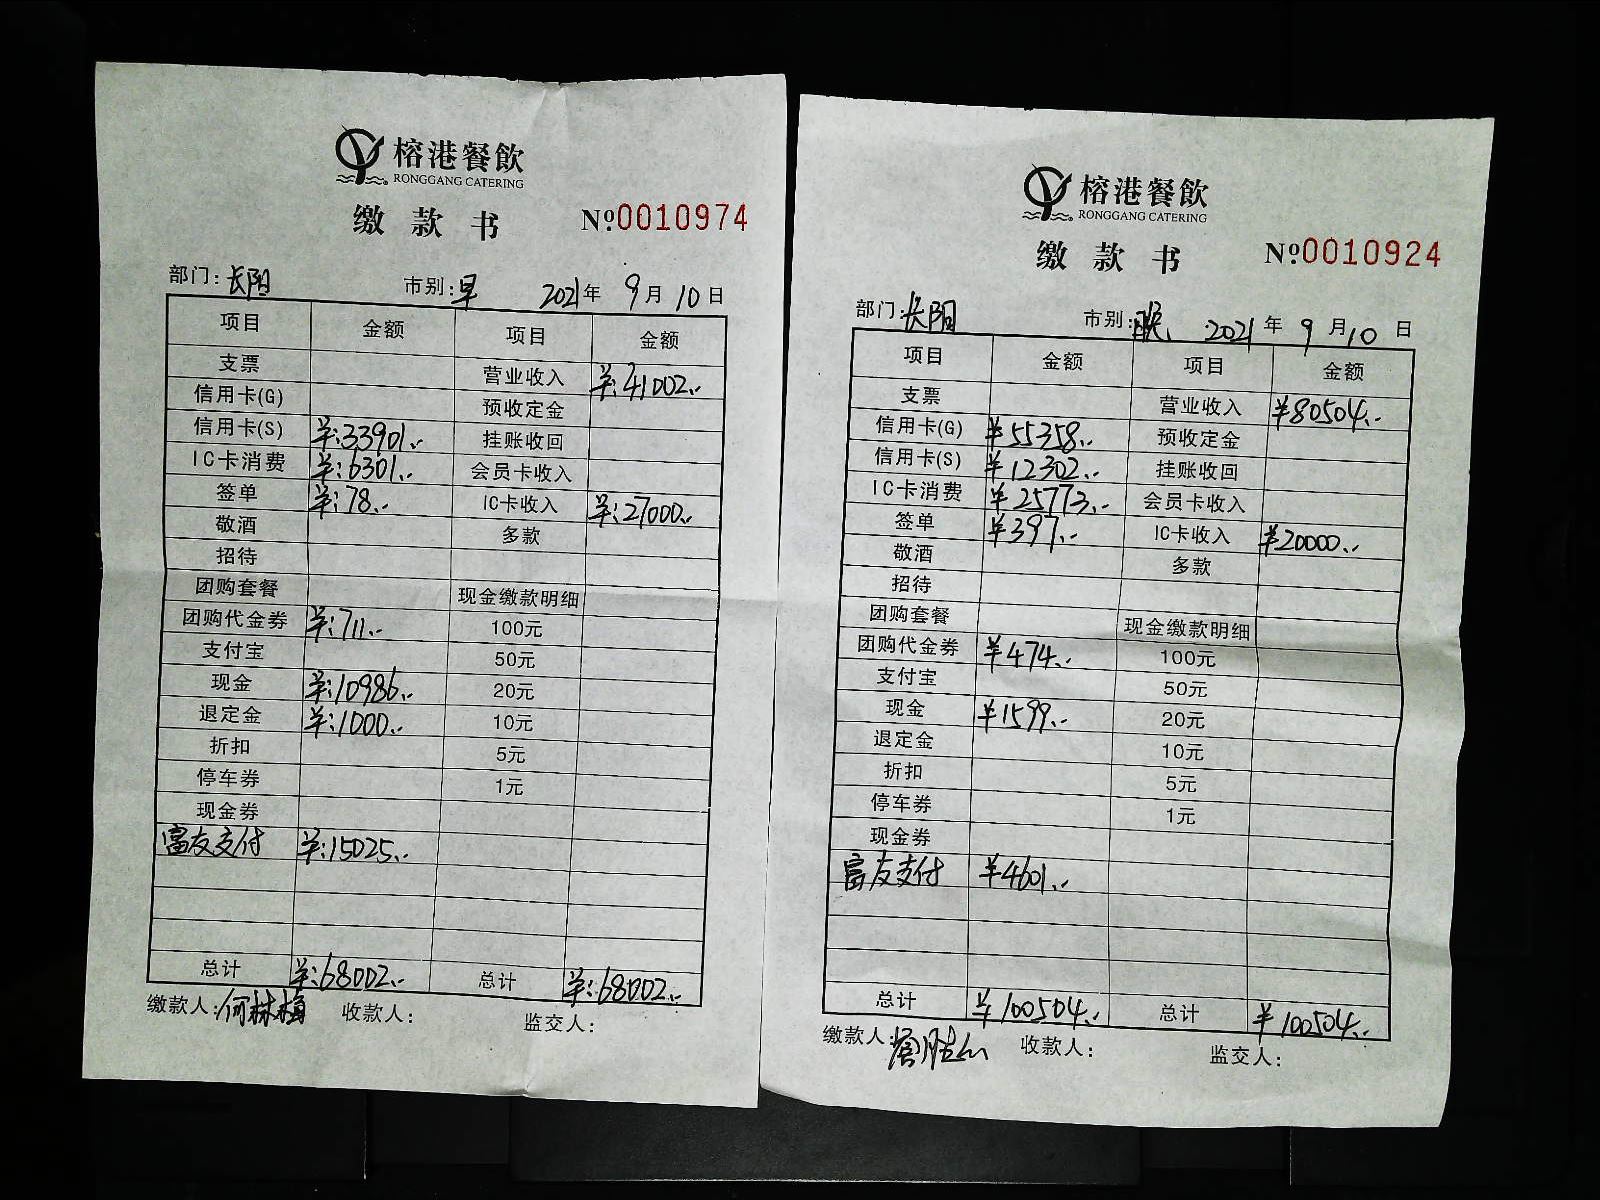 榕港餐飲
RONGGANG CATERING
缴款书 №0010974
部门：长阳 市别：早 2021年9月10日
项目 金额 项目 金额
支票 营业收入 ¥:41002.--
信用卡(G) 预收定金
信用卡(S) ¥:33901.-- 挂账收回
IC卡消费 ¥:6301.-- 会员卡收入
签单 ¥:78.-- IC卡收入 ¥:27000.--
敬酒 多款
招待
团购套餐 现金缴款明细
团购代金券 ¥:711.-- 100元
支付宝 50元
现金 ¥:10986.-- 20元
退定金 ¥:1000.-- 10元
折扣 5元
停车券 1元
现金券
富友支付 ¥:15025.--
总计 ¥:68002.-- 总计 ¥:68002.--
缴款人：何林梅 收款人： 监交人：
榕港餐飲
RONGGANG CATERING
缴款书 №0010924
部门：长阳 市别：晚 2021年9月10日
项目 金额 项目 金额
支票 营业收入 ¥80504.--
信用卡(G) ¥55358.-- 预收定金
信用卡(S) ¥12302.-- 挂账收回
IC卡消费 ¥25773.-- 会员卡收入
签单 ¥397.-- IC卡收入 ¥20000.--
敬酒 多款
招待
团购套餐 现金缴款明细
团购代金券 ¥474.-- 100元
支付宝 50元
现金 ¥1599.-- 20元
退定金 10元
折扣 5元
停车券 1元
现金券
富友支付 ¥4601.--
总计 ¥100504.-- 总计 ¥100504.--
缴款人： 收款人： 监交人：